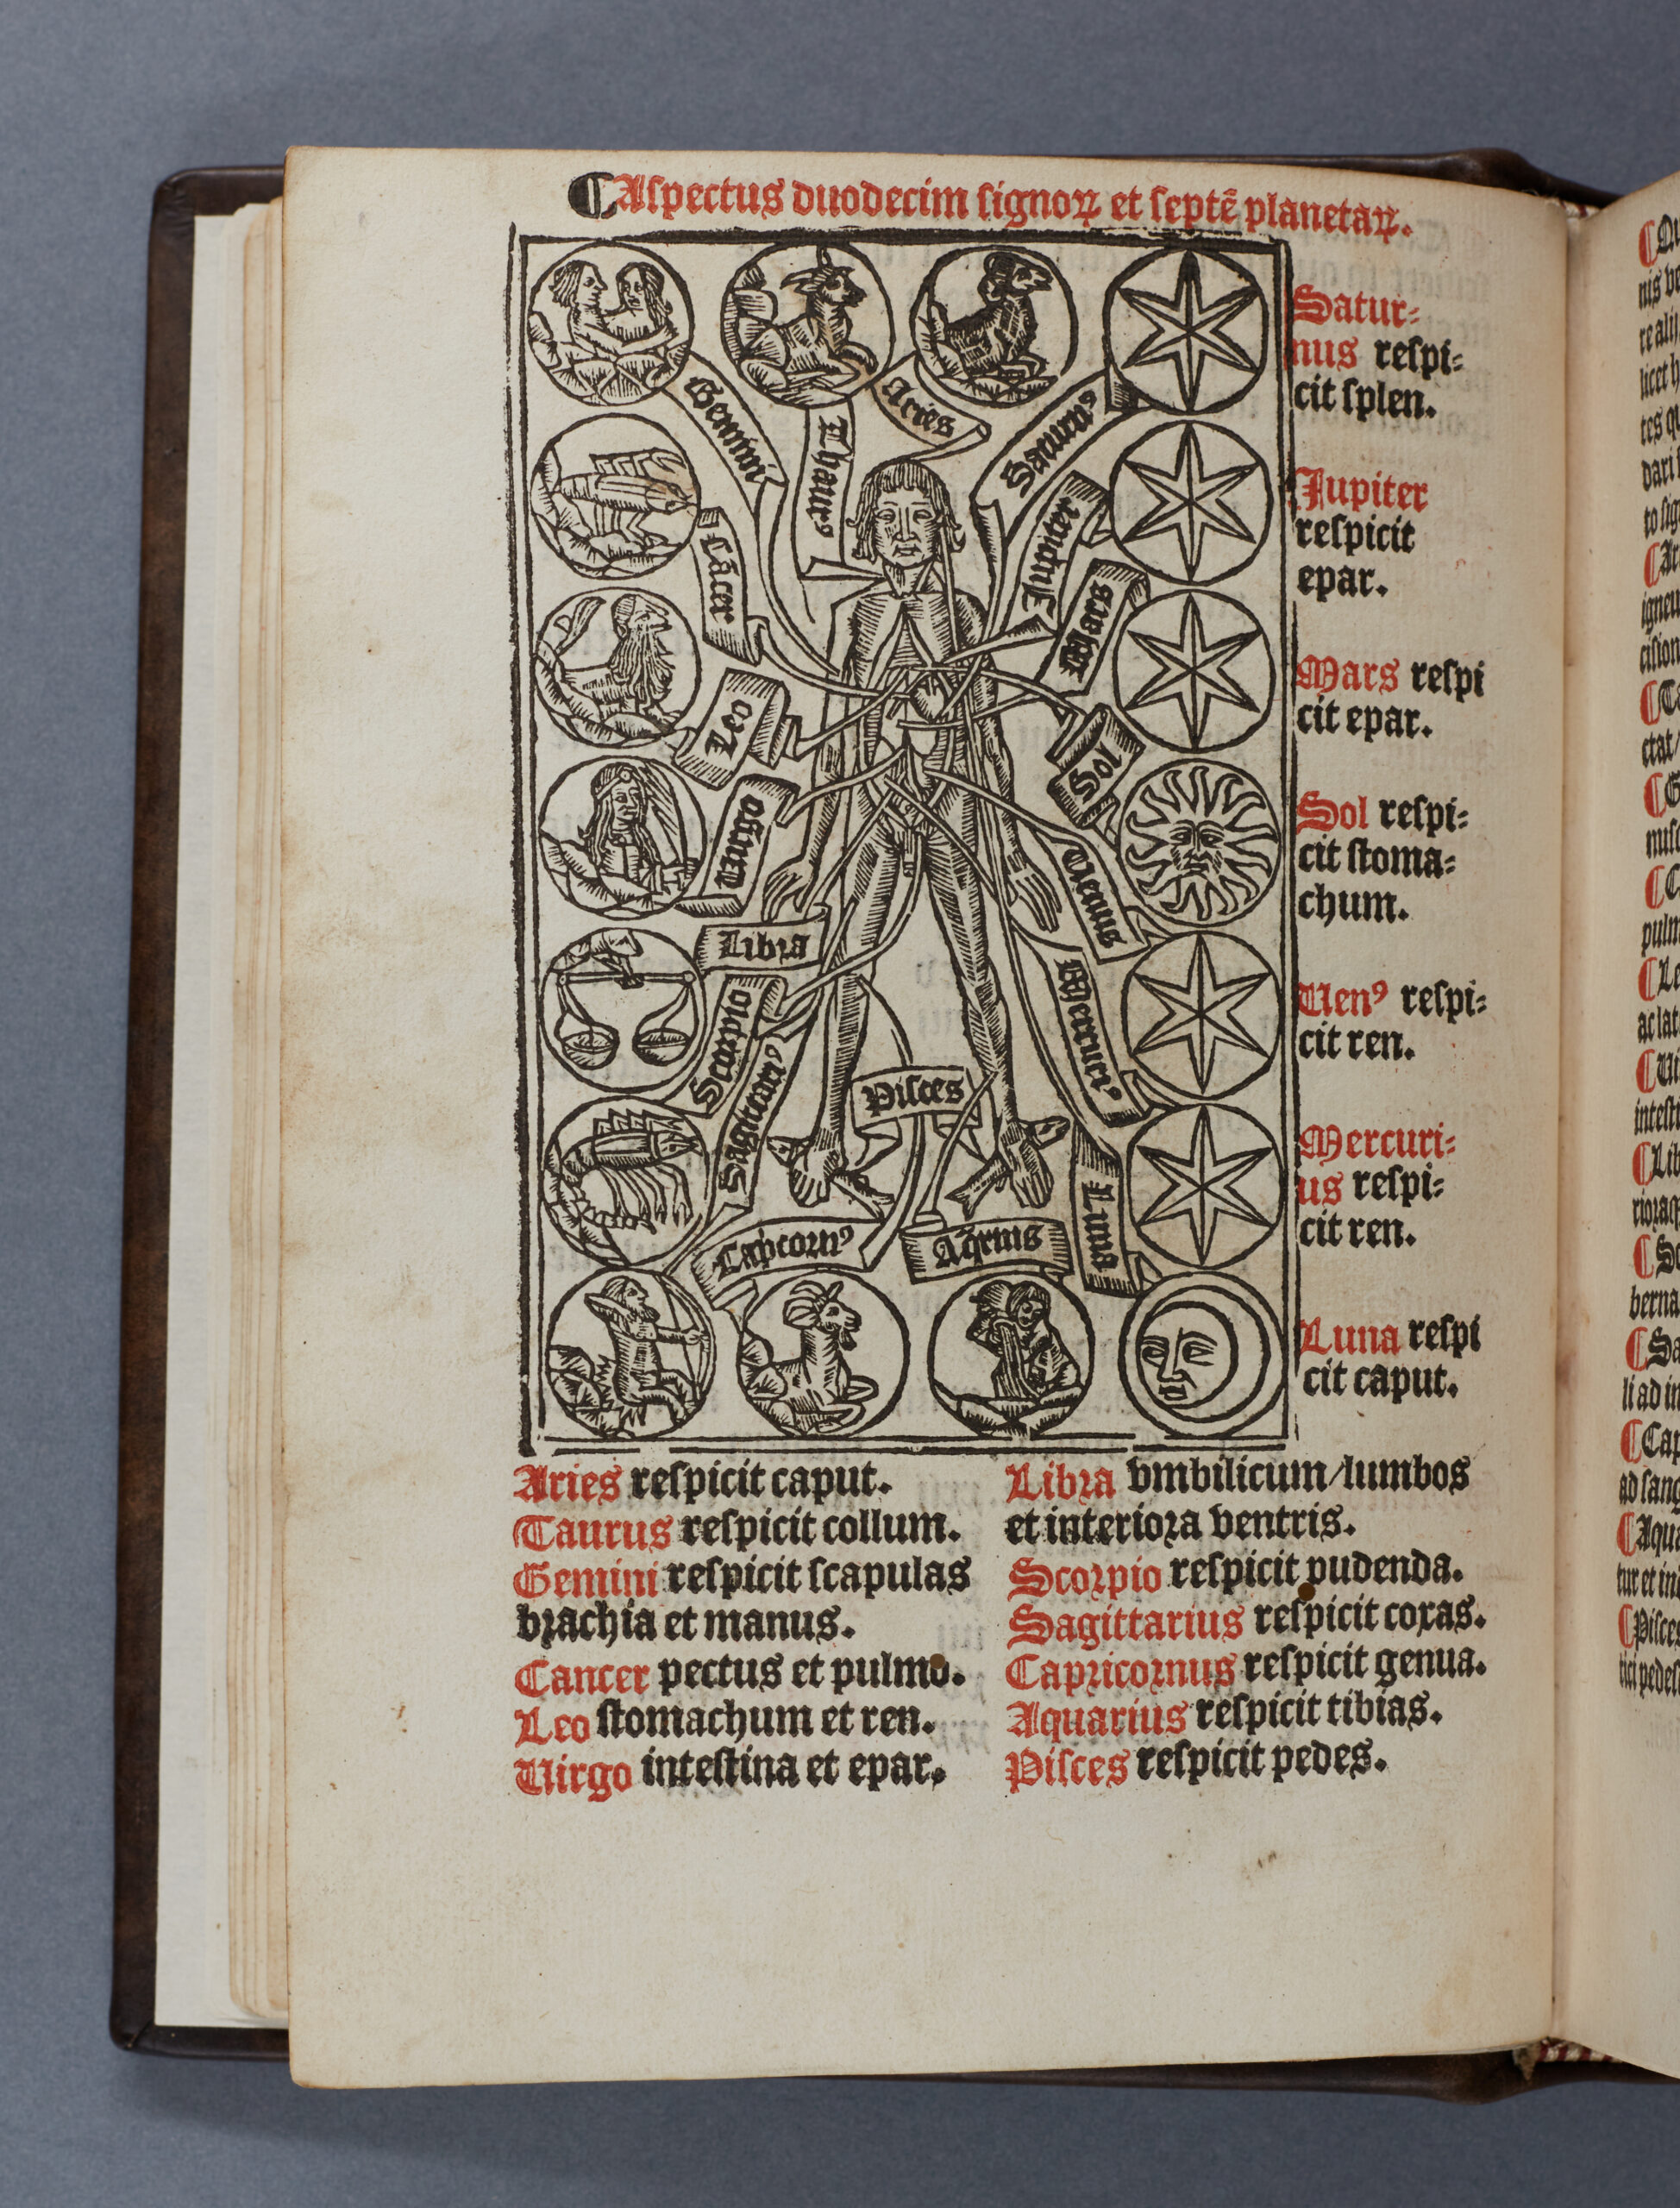 ¶ Aspectus duodecim signoꝝ et septē planetaꝝ.
Gemini
Thaurꝰ
Aries
Saturnꝰ
Cācer
Jupiter
Mars
Leo
Sol
Virgo
Venus
Libra
Scorpio
Mercuriꝰ
Sagittariꝰ
Pisces
Luna
Capicornꝰ
Aqrius
Satur⸗
nus respi⸗
cit splen.
Jupiter
respicit
epar.
Mars respi
cit epar.
Sol respi⸗
cit stoma⸗
chum.
Uenꝰ respi⸗
cit ren.
Mercuri⸗
us respi⸗
cit ren.
Luna respi
cit caput.
Aries respicit caput.
Taurus respicit collum.
Gemini respicit scapulas
brachia et manus.
Cancer pectus et pulmo.
Leo stomachum et ren.
Uirgo intestina et epar.
Libra vmbilicum/lumbos
et interiora ventris.
Scorpio respicit pudenda.
Sagittarius respicit coxas.
Capricornus respicit genua.
Aquarius respicit tibias.
Pisces respicit pedes.